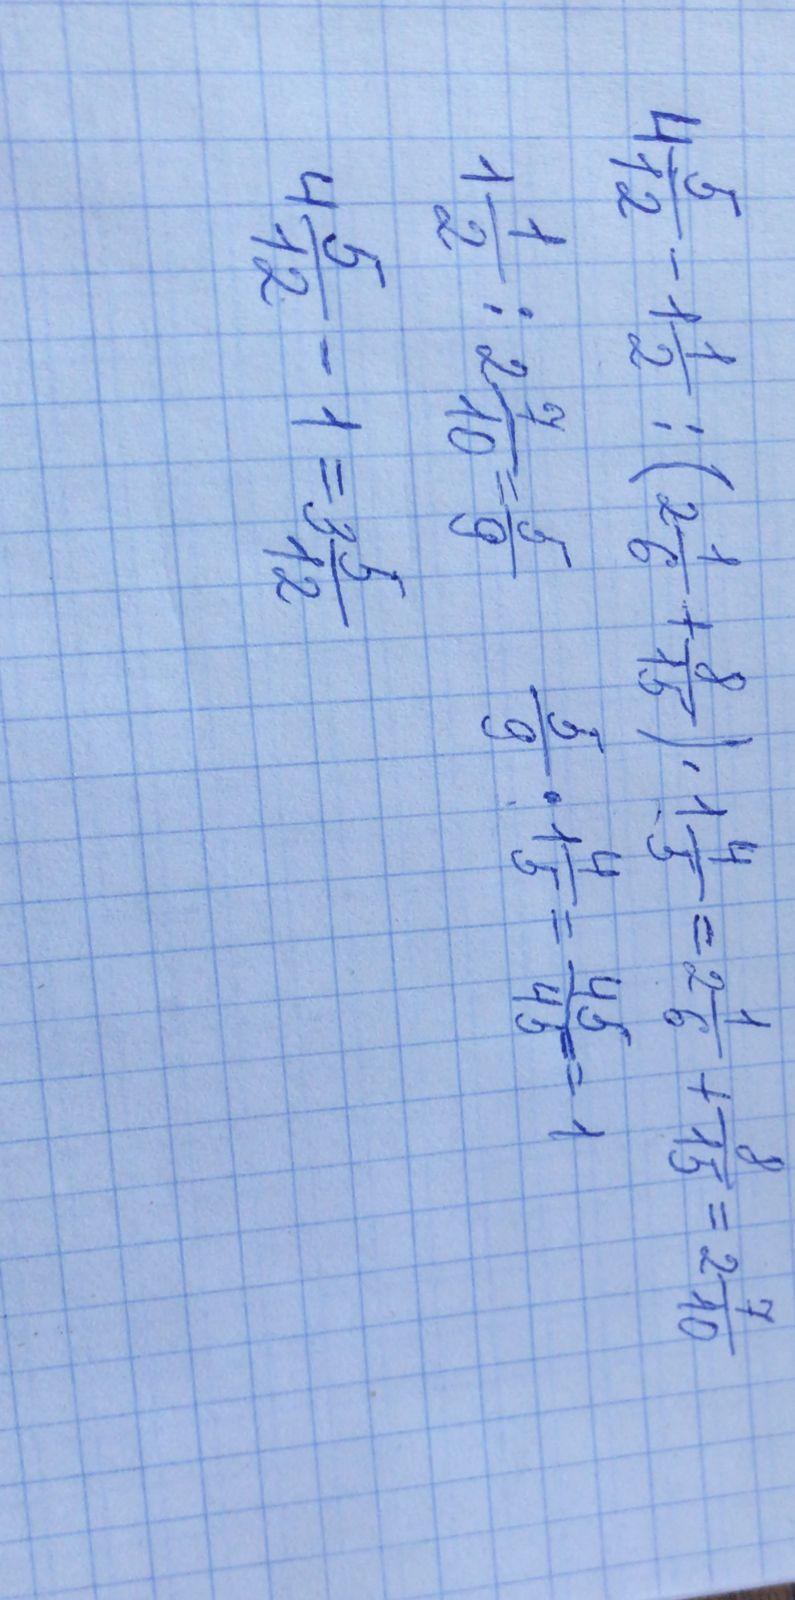 4 5/12 - 1 1/2 : (2 1/6 + 8/15) · 1 4/5 = 2 1/6 + 8/15 = 2 7/10
1 1/2 : 2 7/10 = 5/9   5/9 · 1 4/5 = 45/45 = 1
4 5/12 - 1 = 3 5/12